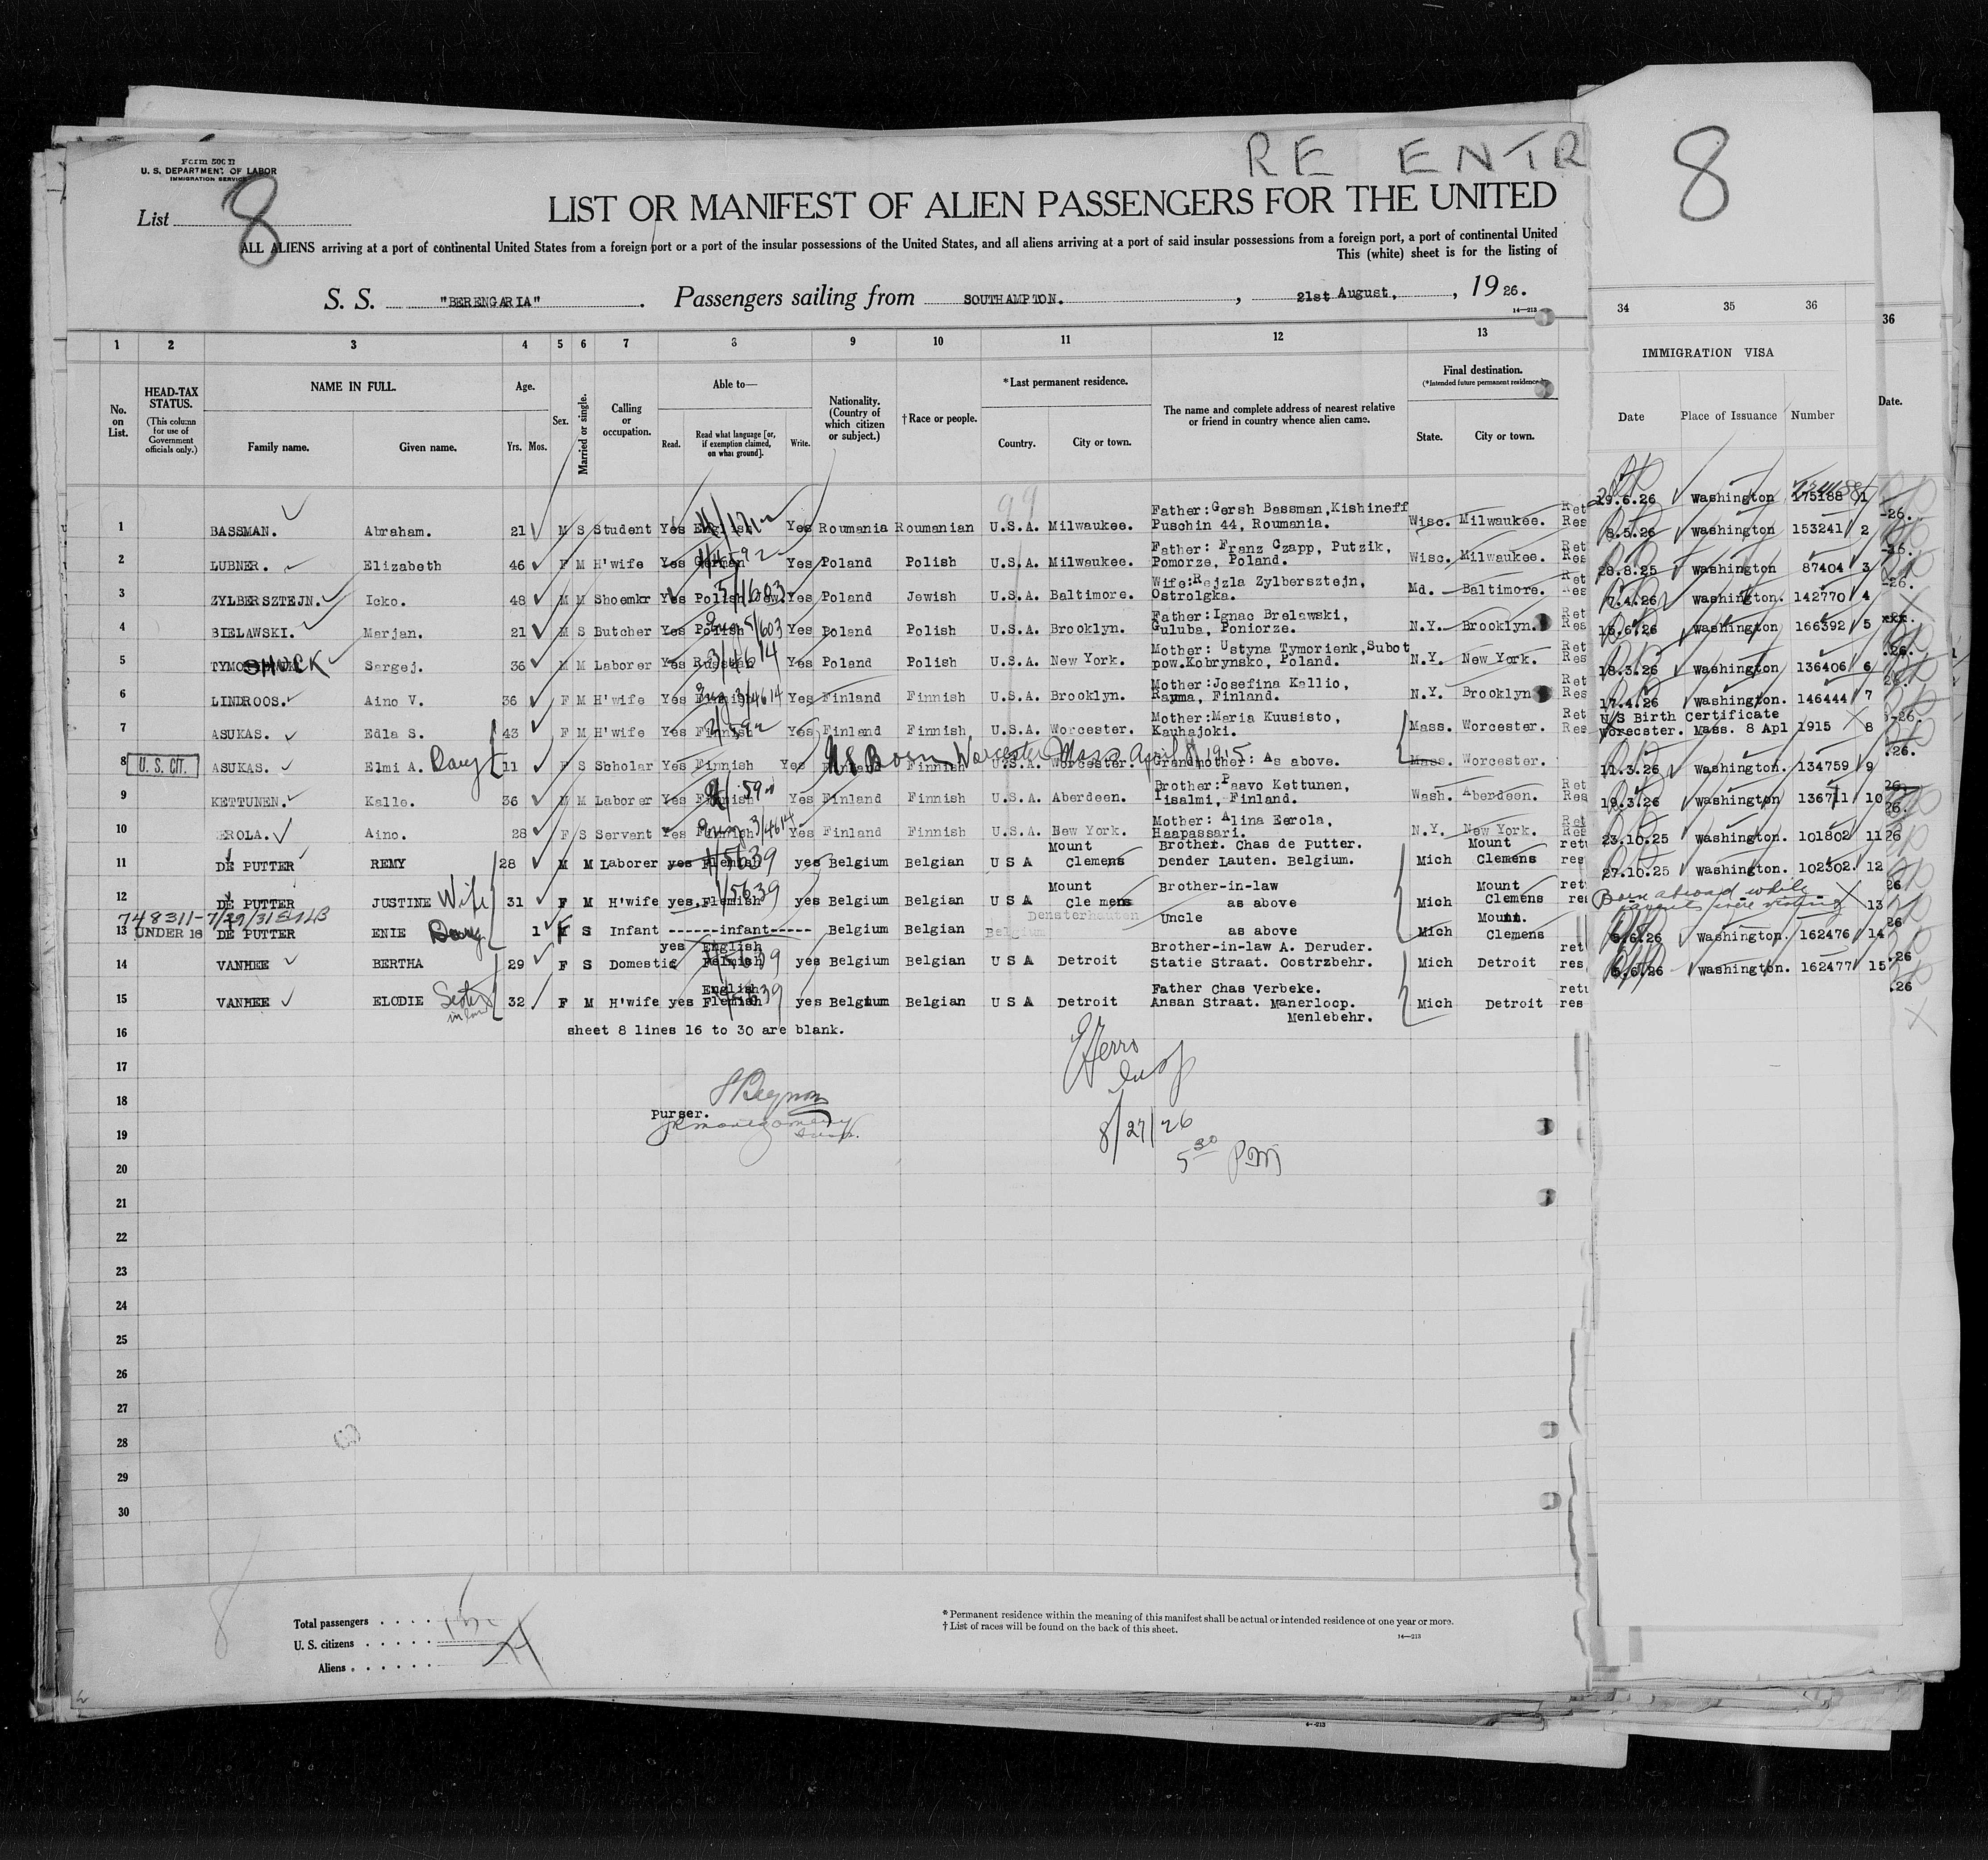 RE ENTR
8
Form 500 B
U. S. DEPARTMENT OF LABOR
IMMIGRATION SERVICE
List 8
LIST OR MANIFEST OF ALIEN PASSENGERS FOR THE UNITED
ALL ALIENS arriving at a port of continental United States from a foreign port or a port of the insular possessions of the United States, and all aliens arriving at a port of said insular possessions from a foreign port, a port of continental United
This (white) sheet is for the listing of
S. S. "BERENGARIA" . Passengers sailing from SOUTHAMPTON. , 21st August, , 1926.
14—213
1 2 3 4 5 6 7 8 9 10 11 12 13 34 35 36 36
No. on List.
HEAD-TAX STATUS. (This column for use of Government officials only.)
NAME IN FULL. Family name. Given name.
Age. Yrs. Mos.
Sex.
Married or single.
Calling or occupation.
Able to— Read. Read what language [or, if exemption claimed, on what ground]. Write.
Nationality. (Country of which citizen or subject.)
†Race or people.
*Last permanent residence. Country. City or town.
The name and complete address of nearest relative or friend in country whence alien came.
Final destination. (*Intended future permanent residence.) State. City or town.
IMMIGRATION VISA
Date Place of Issuance Number Date.
1 BASSMAN. Abraham. 21 M S Student Yes English Yes Roumania Roumanian U.S.A. Milwaukee. Father:Gersh Bassman,Kishineff Puschin 44, Roumania. Wisc. Milwaukee. Ret Res 19.6.26 Washington 175188 1
2 LUBNER. Elizabeth 46 F M H'wife Yes German Yes Poland Polish U.S.A. Milwaukee. Father: Franz Czapp, Putzik, Pomorze, Poland. Wisc. Milwaukee. Ret Res 8.5.26 Washington 153241 2
3 ZYLBERSZTEJN. Icko. 48 M M Shoemkr Yes Polish Jew. Yes Poland Jewish U.S.A. Baltimore. Wife:Rejzla Zylbersztejn, Ostrolgka. Md. Baltimore. Ret Res 28.8.25 Washington 87404 3
4 BIELAWSKI. Marjan. 21 M S Butcher Yes Polish Yes Poland Polish U.S.A. Brooklyn. Father:Ignac Brelawski, Guluba, Poniorze. N.Y. Brooklyn. Ret Res 7.4.26 Washington. 142770 4
5 SHUCK Sergej. 36 M M Laborer Yes Russian Yes Poland Polish U.S.A. New York. Mother: Ustyna Tymorienk,Subot pow.Kobrynsko, Poland. N.Y. New York. Ret Res 15.6.26 Washington 166392 5
6 LINDROOS. Aino V. 36 F M H'wife Yes English Yes Finland Finnish U.S.A. Brooklyn. Mother:Josefina Kallio, Rayma, Finland. N.Y. Brooklyn Ret Res 18.3.26 Washington 136406 6
7 ASUKAS. Edla S. 43 F M H'wife Yes Finnish Yes Finland Finnish U.S.A. Worcester. Mother:Maria Kuusisto, Kauhajoki. Mass. Worcester. Ret Res 17.4.26 Washington. 146444 7
8 U. S. CIT. ASUKAS. Elmi A. 11 F S Scholar Yes Finnish Yes Finland Finnish U.S.A. Worcester. Grandmother: As above. Mass. Worcester. U S Birth Certificate Worecster. Mass. 8 Apl 1915 8
US Born Worcester Mass April 8 1915
9 KETTUNEN. Kalle. 36 M M Laborer Yes Finnish Yes Finland Finnish U.S.A. Aberdeen. Brother:Paavo Kettunen, Iisalmi, Finland. Wash. Aberdeen. Ret Res 11.3.26 Washington. 134759 9
10 EROLA. Aino. 28 F S Servent Yes Finnish Yes Finland Finnish U.S.A. New York. Mother: Alina Eerola, Haapassari. N.Y. New York. Ret Res 19.3.26 Washington 136711 10
11 DE PUTTER REMY 28 M M Laborer yes Flemish yes Belgium Belgian U S A Mount Clemens Brother. Chas de Putter. Dender Lauten. Belgium. Mich Mount Clemens ret res 23.10.25 Washington. 101802 11
12 DE PUTTER JUSTINE Wife 31 F M H'wife yes Flemish yes Belgium Belgian U S A Mount Clemens Brother-in-law as above Mich Mount Clemens ret res 27.10.25 Washington. 102302 12
748311-7/29/31
13 UNDER 16 DE PUTTER ENIE 1 F S Infant ------infant----- Belgium Belgian Belgium Densterhouten Uncle as above Mich Mount. Clemens Born abroad while parents were visiting 13
14 VANHEE BERTHA 29 F S Domestic yes English Felmish yes Belgium Belgian U S A Detroit Brother-in-law A. Deruder. Statie Straat. Oostrzbehr. Mich Detroit ret res 5.6.26 Washington. 162476 14
15 VANHEE ELODIE Sister in law 32 F M H'wife yes English Flemish yes Belgium Belgian U S A Detroit Father Chas Verbeke. Ansan Straat. Manerloop. Menlebehr. Mich Detroit ret res 5.6.26 Washington. 162477 15
16 sheet 8 lines 16 to 30 are blank.
17
18
Purser.
19
8/27/26
5 30 PM
20
21
22
23
24
25
26
27
28
29
30
8
Total passengers . . . .
U. S. citizens . . . . .
Aliens . . . . . .
* Permanent residence within the meaning of this manifest shall be actual or intended residence of one year or more.
† List of races will be found on the back of this sheet.
14—213